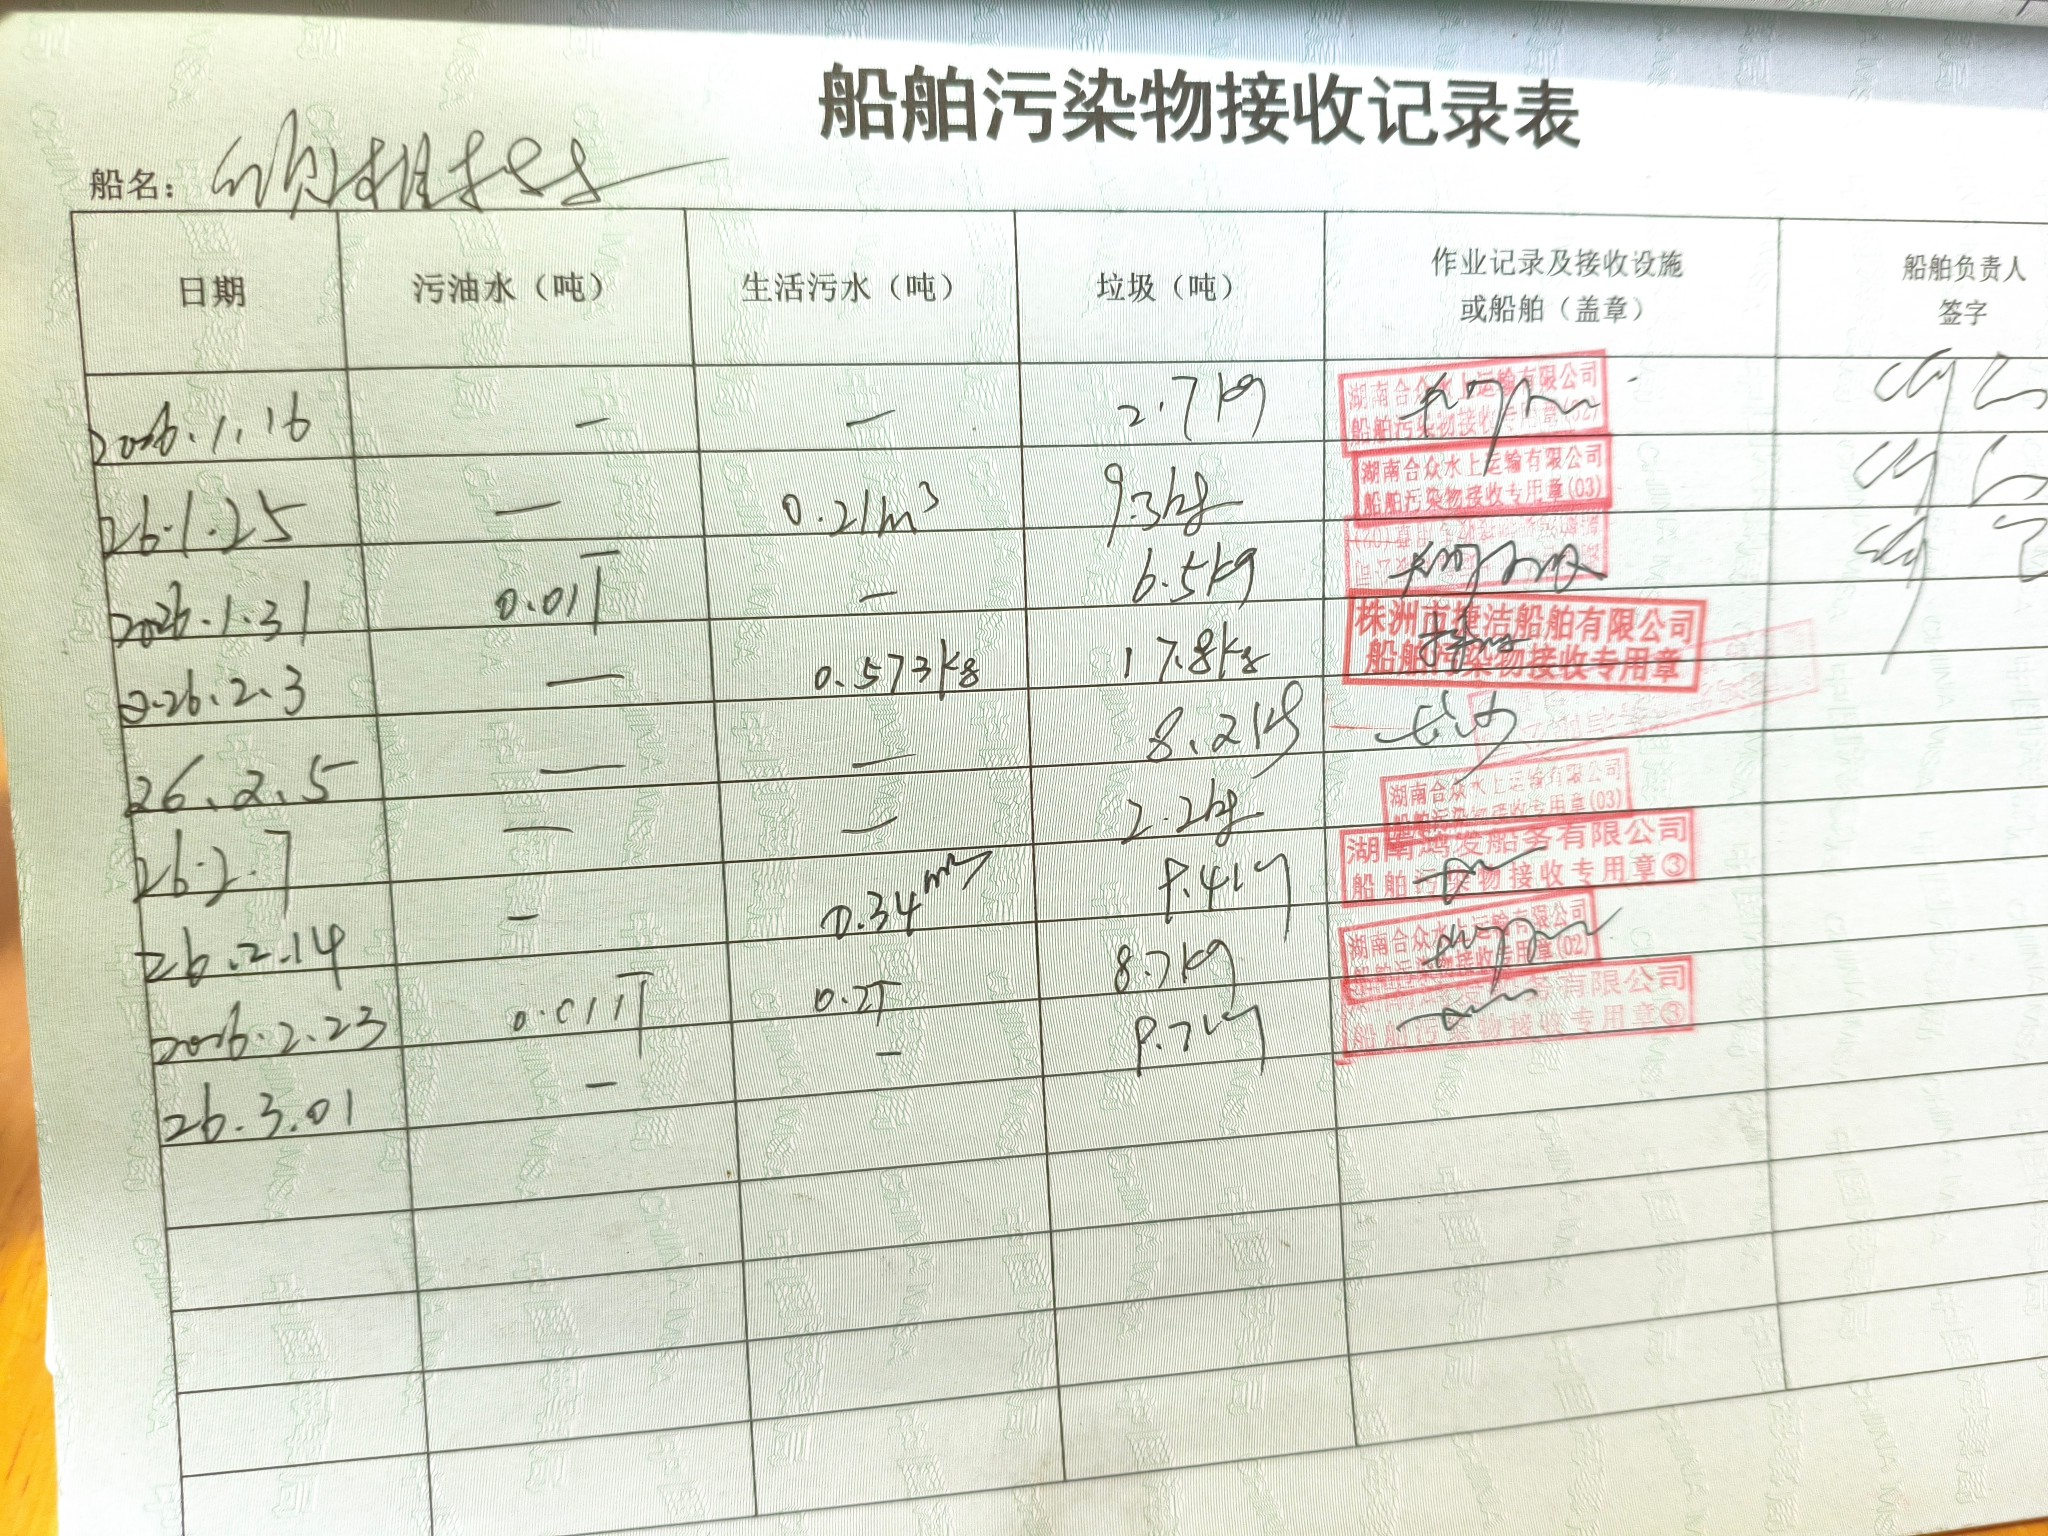 船舶污染物接收记录表
船名：
日期 污油水（吨） 生活污水（吨） 垃圾（吨） 作业记录及接收设施 船舶负责人
或船舶（盖章） 签字
2026.1.16 — — 2.7kg 湖南合众水上运输有限公司
船舶污染物接收专用章(02)
26.1.25 — 0.21m³ 9.3kg 湖南合众水上运输有限公司
船舶污染物接收专用章(03)
2026.1.31 0.01T — 6.5kg
2026.2.3 — 0.573kg 17.8kg 株洲市捷洁船舶有限公司
船舶污染物接收专用章
26.2.5 — — 8.2kg
26.2.7 — — 2.2kg 湖南合众水上运输有限公司
船舶污染物接收专用章(03)
26.2.14 — 0.34m³ 8.4kg 湖南鸿发船务有限公司
船舶污染物接收专用章③
2026.2.23 0.011T 0.2T 8.7kg 湖南合众水上运输有限公司
船舶污染物接收专用章(02)
26.3.01 — — 8.7kg 船务有限公司
船舶污染物接收专用章③